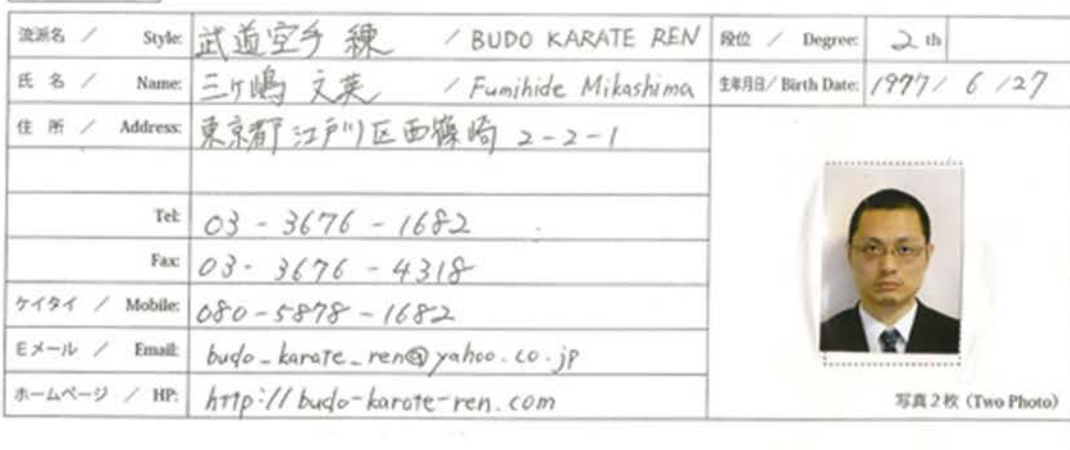 流派名 / Style: 武道空手 練 / BUDO KARATE REN 段位 / Degree: 2 th
氏 名 / Name: 三ヶ嶋 文英 / Fumihide Mikashima 生年月日/ Birth Date: 1977/ 6 /27
住 所 / Address: 東京都江戸川区西篠崎 2-2-1
Tel: 03 - 3676 - 1682
Fax: 03 - 3676 - 4318
ケイタイ / Mobile: 080-5878-1682
Eメール / Email: budo_karate_ren@yahoo.co.jp
ホームページ / HP: http://budo-karate-ren.com
写真2枚 (Two Photo)